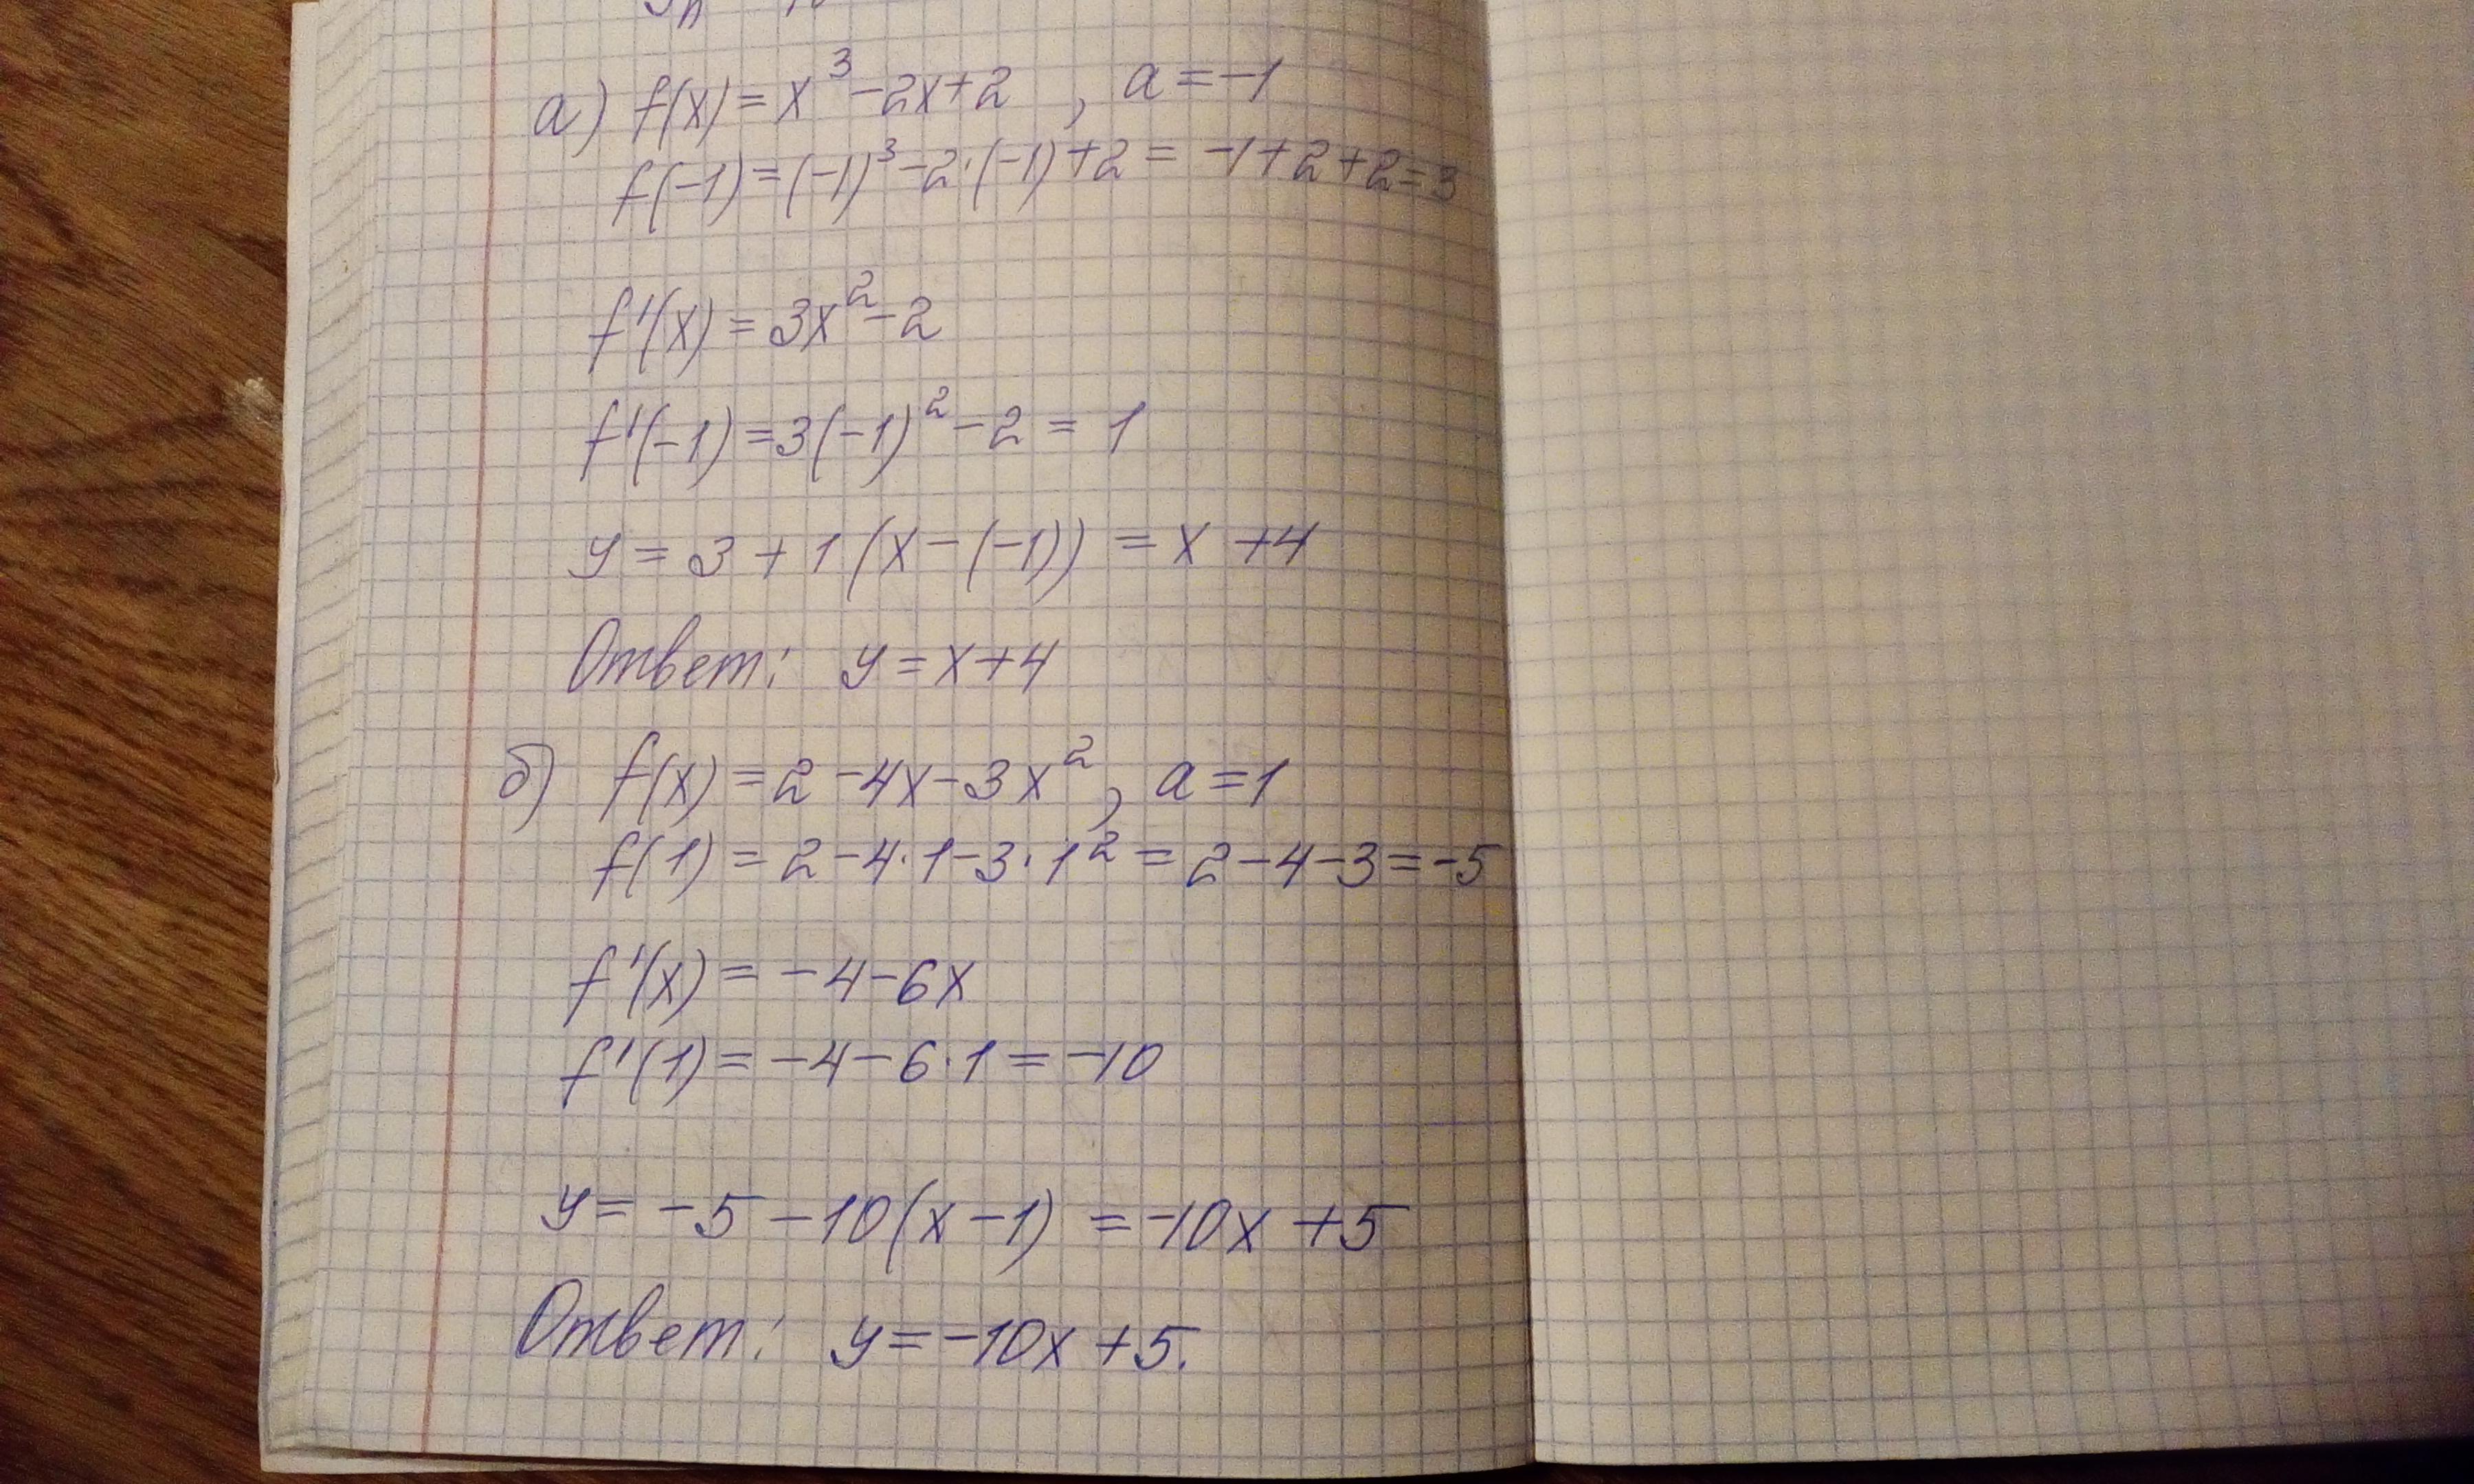 а) f(x) = x³ - 2x + 2, a = -1
f(-1) = (-1)³ - 2·(-1) + 2 = -1 + 2 + 2 = 3
f'(x) = 3x² - 2
f'(-1) = 3(-1)² - 2 = 1
y = 3 + 1(x - (-1)) = x + 4
Ответ: y = x + 4
б) f(x) = 2 - 4x - 3x², a = 1
f(1) = 2 - 4·1 - 3·1² = 2 - 4 - 3 = -5
f'(x) = -4 - 6x
f'(1) = -4 - 6·1 = -10
y = -5 - 10(x - 1) = -10x + 5
Ответ: y = -10x + 5.